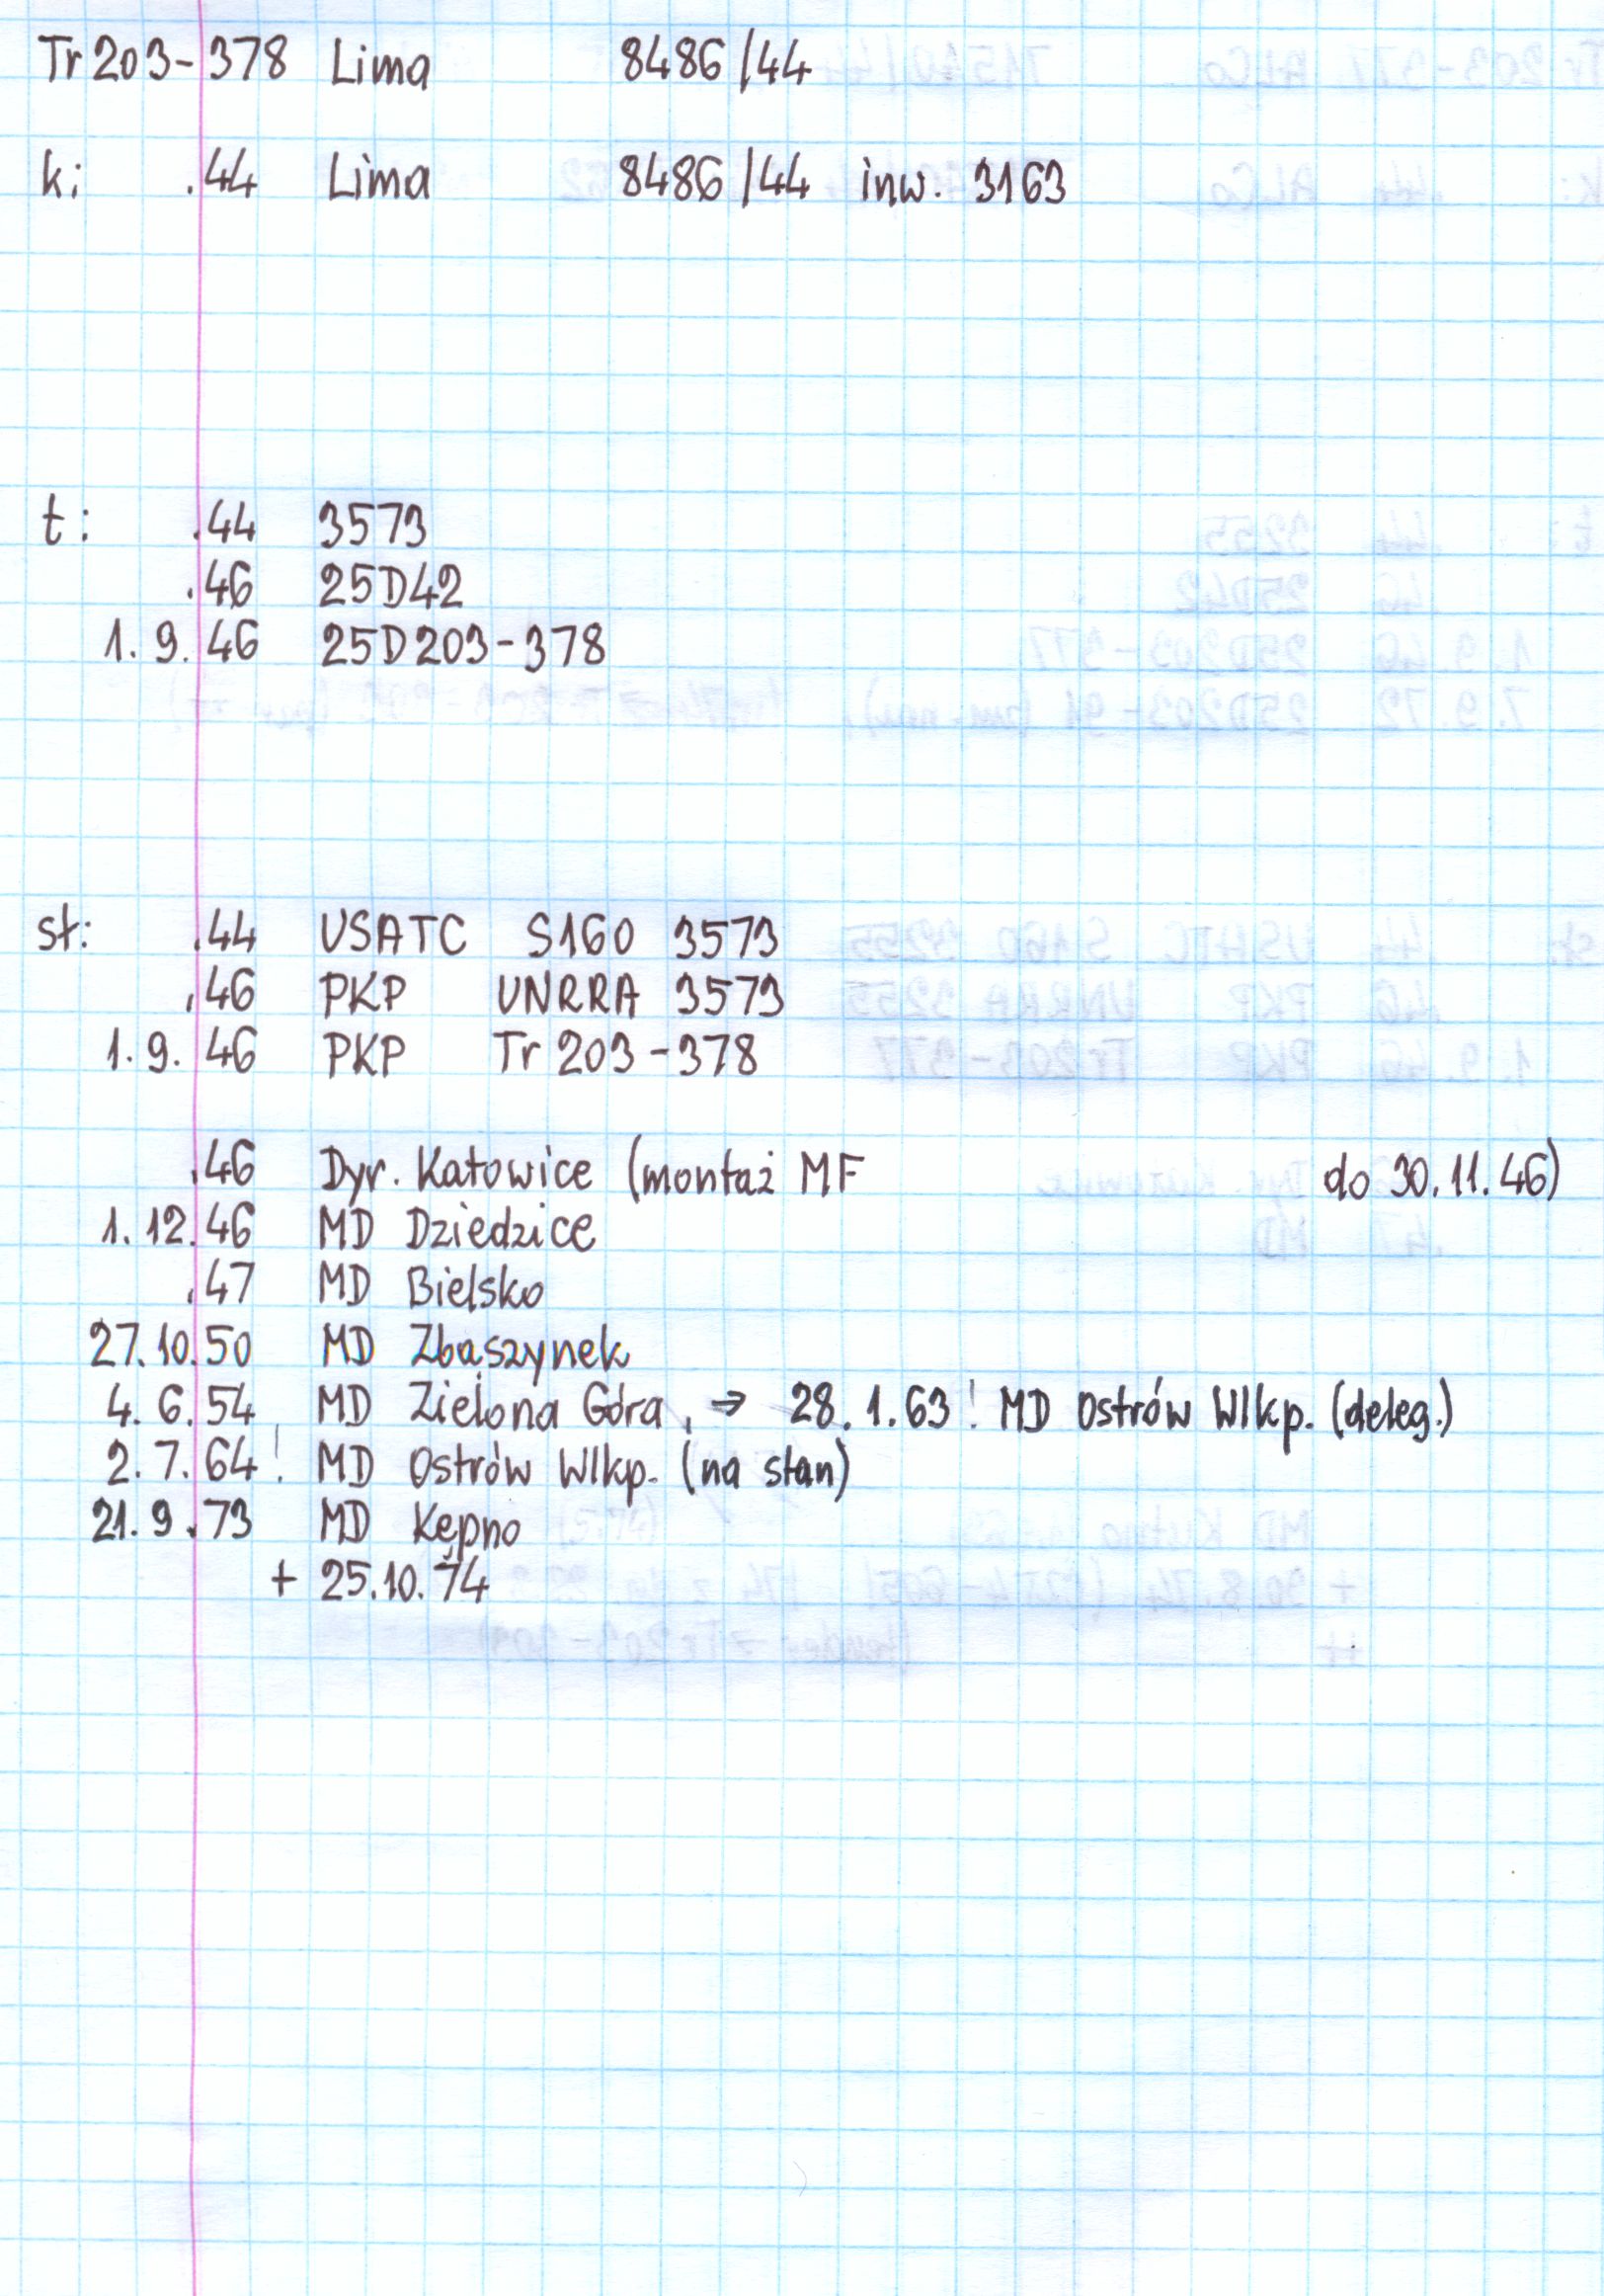 Tr 203-378 Lima 8486/44
k: .44 Lima 8486/44 inw. 3163
t: .44 3573
.46 25D42
1. 9. 46 25D203-378
st: .44 USATC S160 3573
.46 PKP UNRRA 3573
1. 9. 46 PKP Tr 203-378
.46 Dyr. Katowice (montaż MF do 30.11.46)
1. 12. 46 MD Dziedzice
.47 MD Bielsko
27. 10. 50 MD Zbąszynek
4. 6. 54 MD Zielona Góra, → 28. 1. 63! MD Ostrów Wlkp. (deleg.)
2. 7. 64! MD Ostrów Wlkp. (na stan)
21. 9. 73 MD Kępno
+ 25.10.74